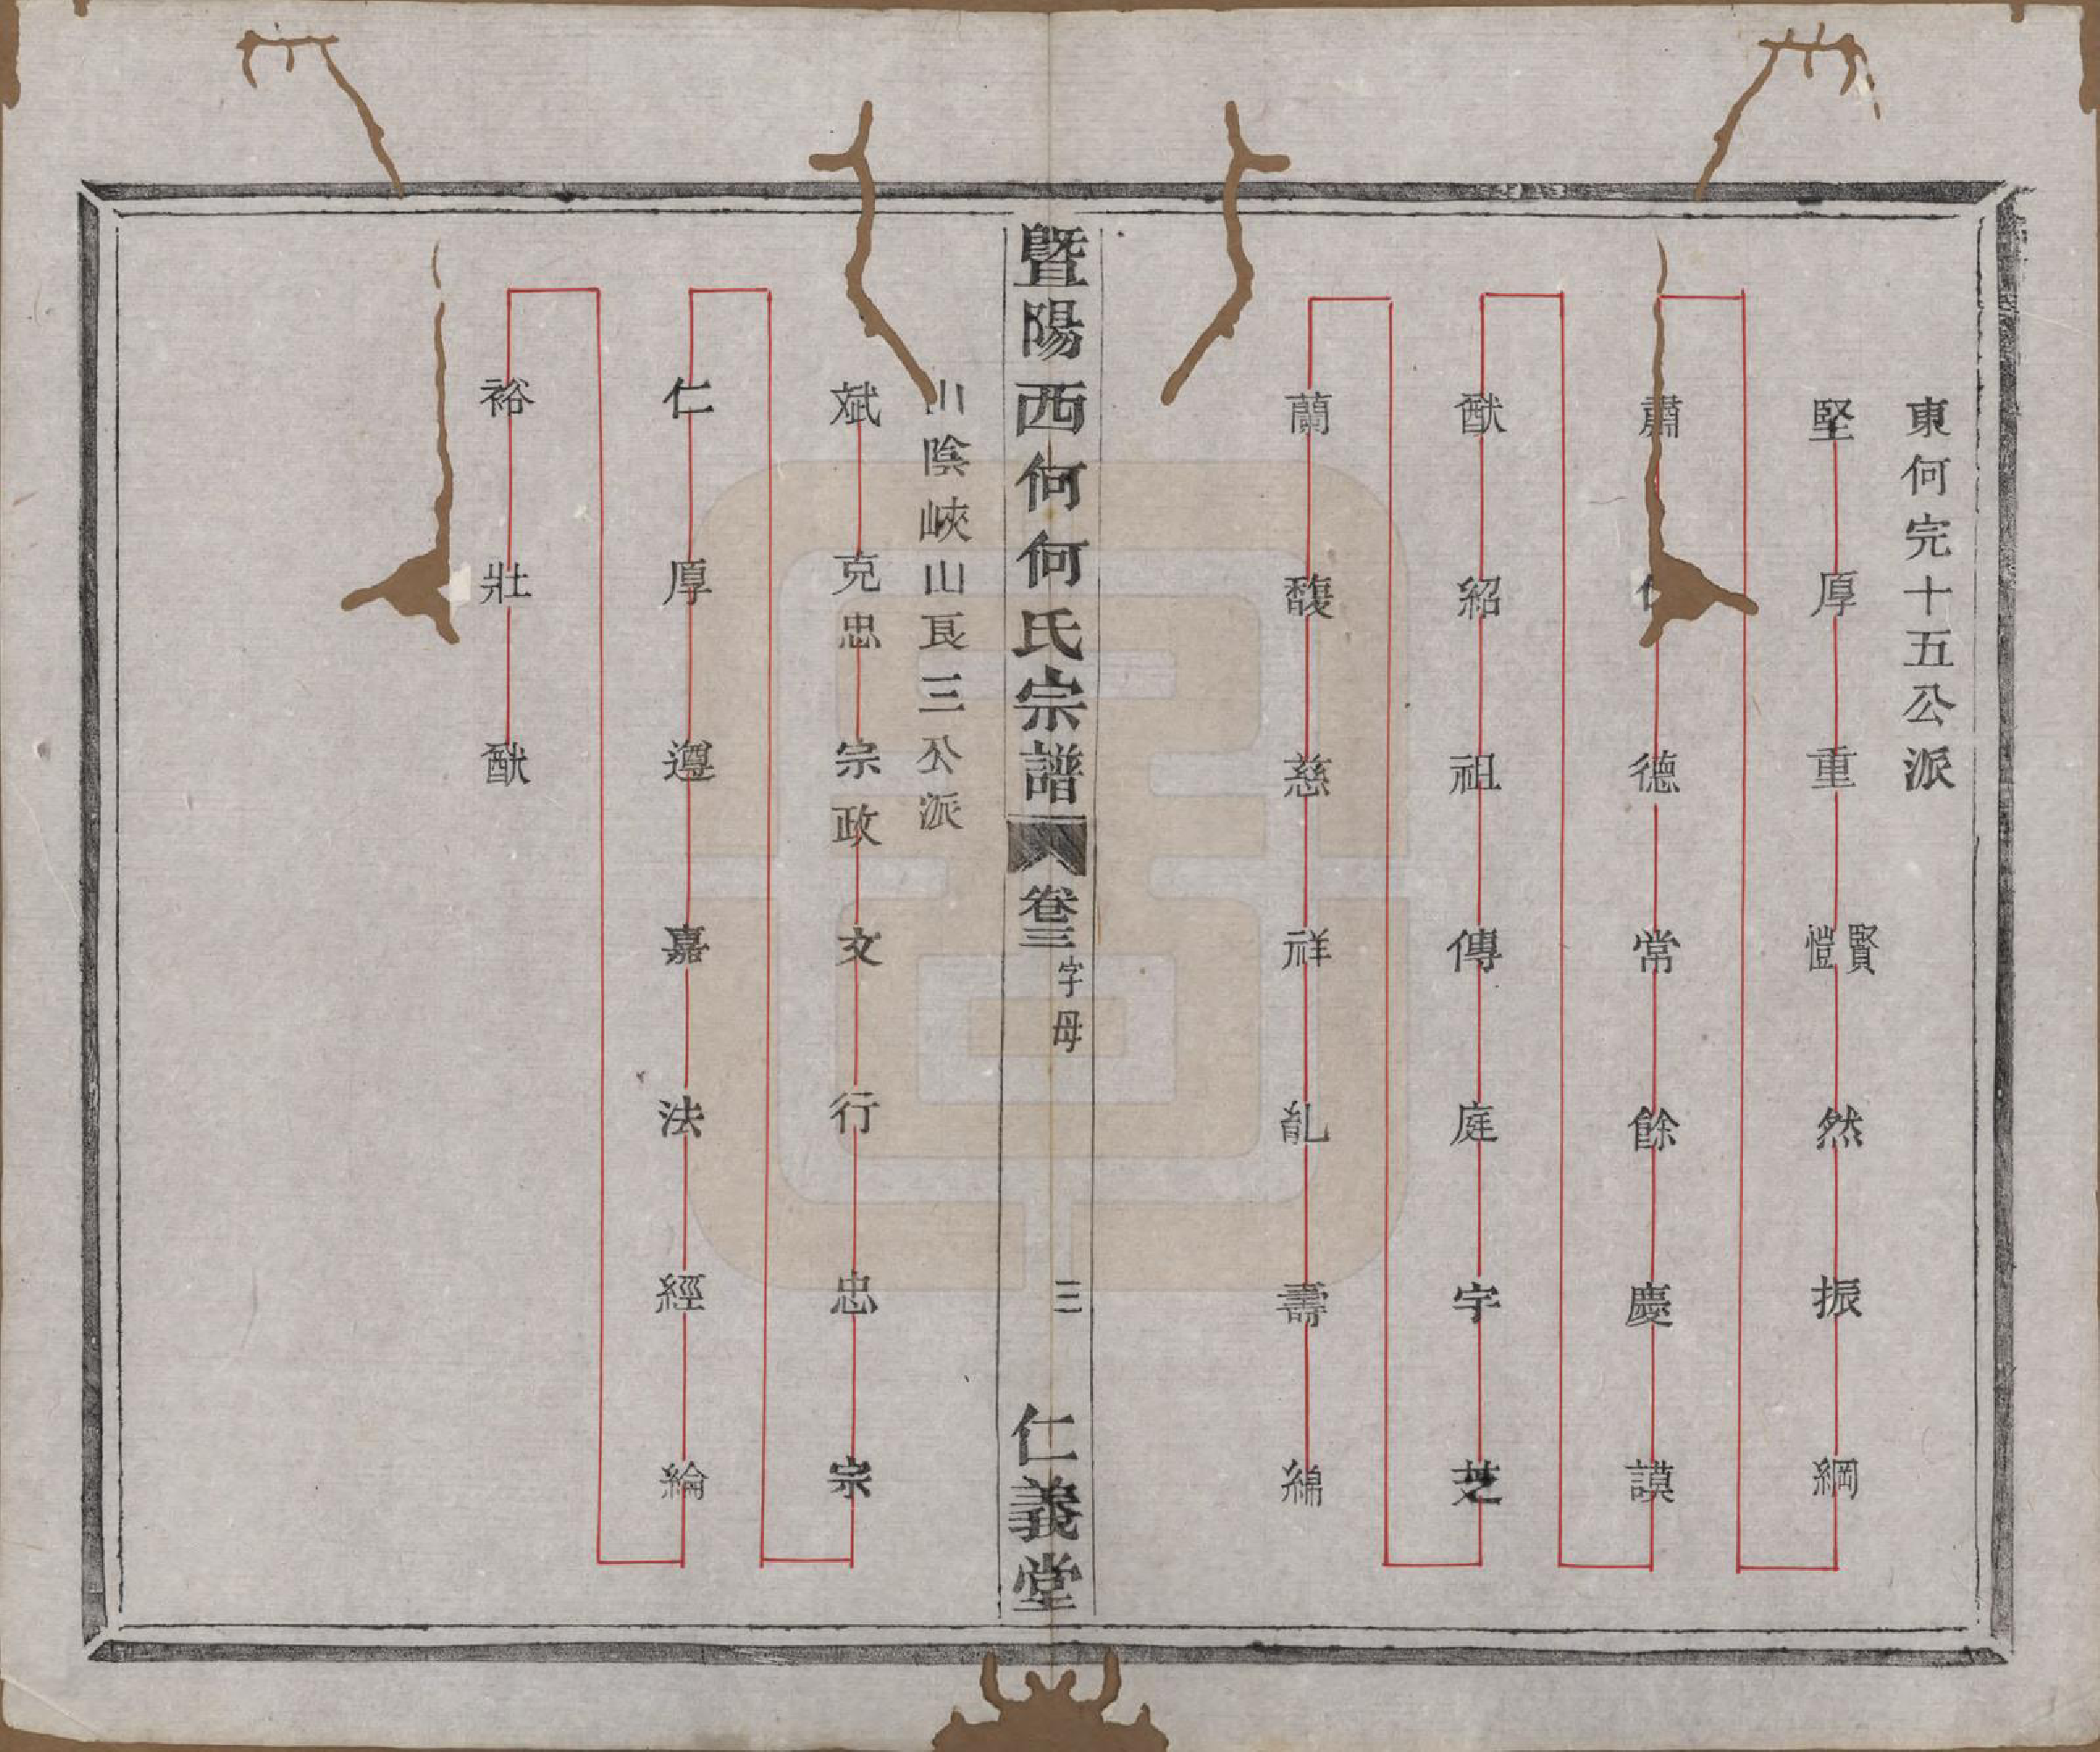 東何完十五公派
堅厚重賢愷然振綱
肅德常餘慶謨
猷紹祖傳庭宇芝
蘭馥慈祥胤壽綿
暨陽西何何氏宗譜 卷三 字母 三 仁義堂
山陰峽山艮三公派
斌克忠宗政文行忠宗
仁厚遵嘉法經綸
裕壯猷